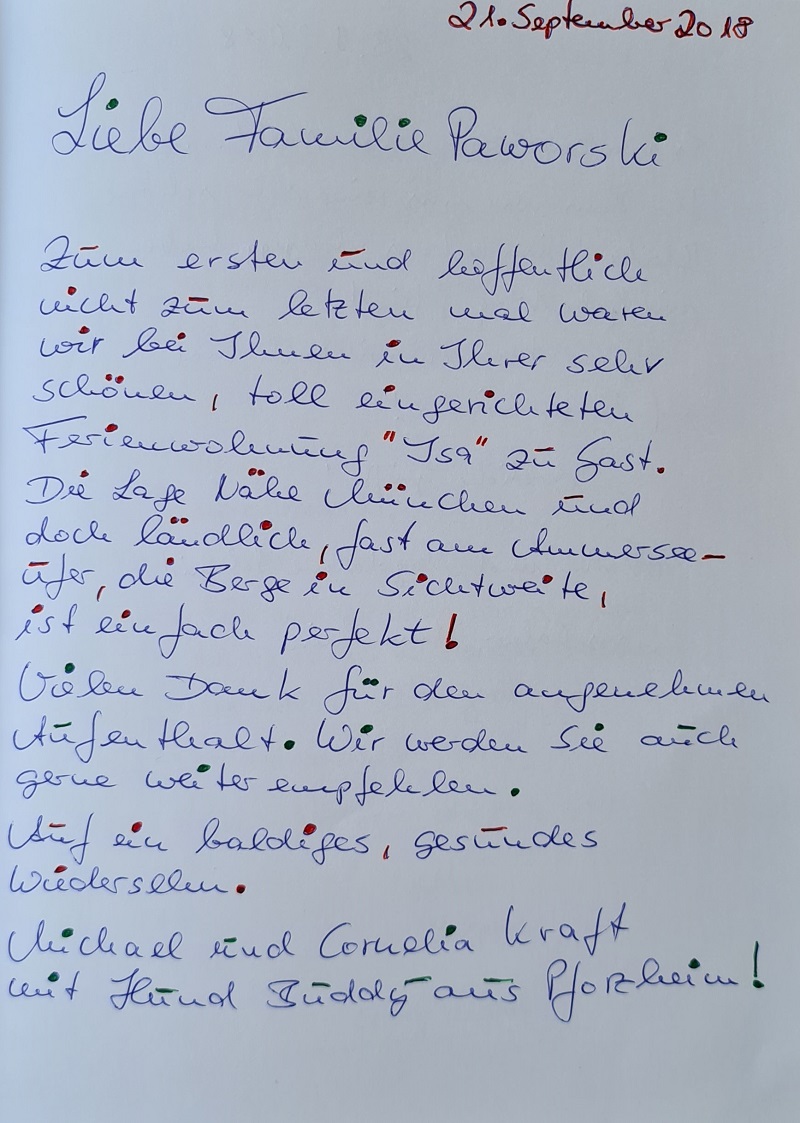 21. September 2018
Liebe Familie Paworski
Zum ersten und hoffentlich
nicht zum letzten mal waren
wir bei Ihnen in Ihrer sehr
schönen, toll eingerichteten
Ferienwohnung "Isa" zu Gast.
Die Lage Nähe München und
doch ländlich, fast am Ammersee-
ufer, die Berge in Sichtweite,
ist einfach perfekt!
Vielen Dank für den angenehmen
Aufenthalt. Wir werden Sie auch
gerne weiterempfehlen.
Auf ein baldiges, gesundes
Wiedersehen.
Michael und Cornelia Kraft
mit Hund Buddy aus Pforzheim!